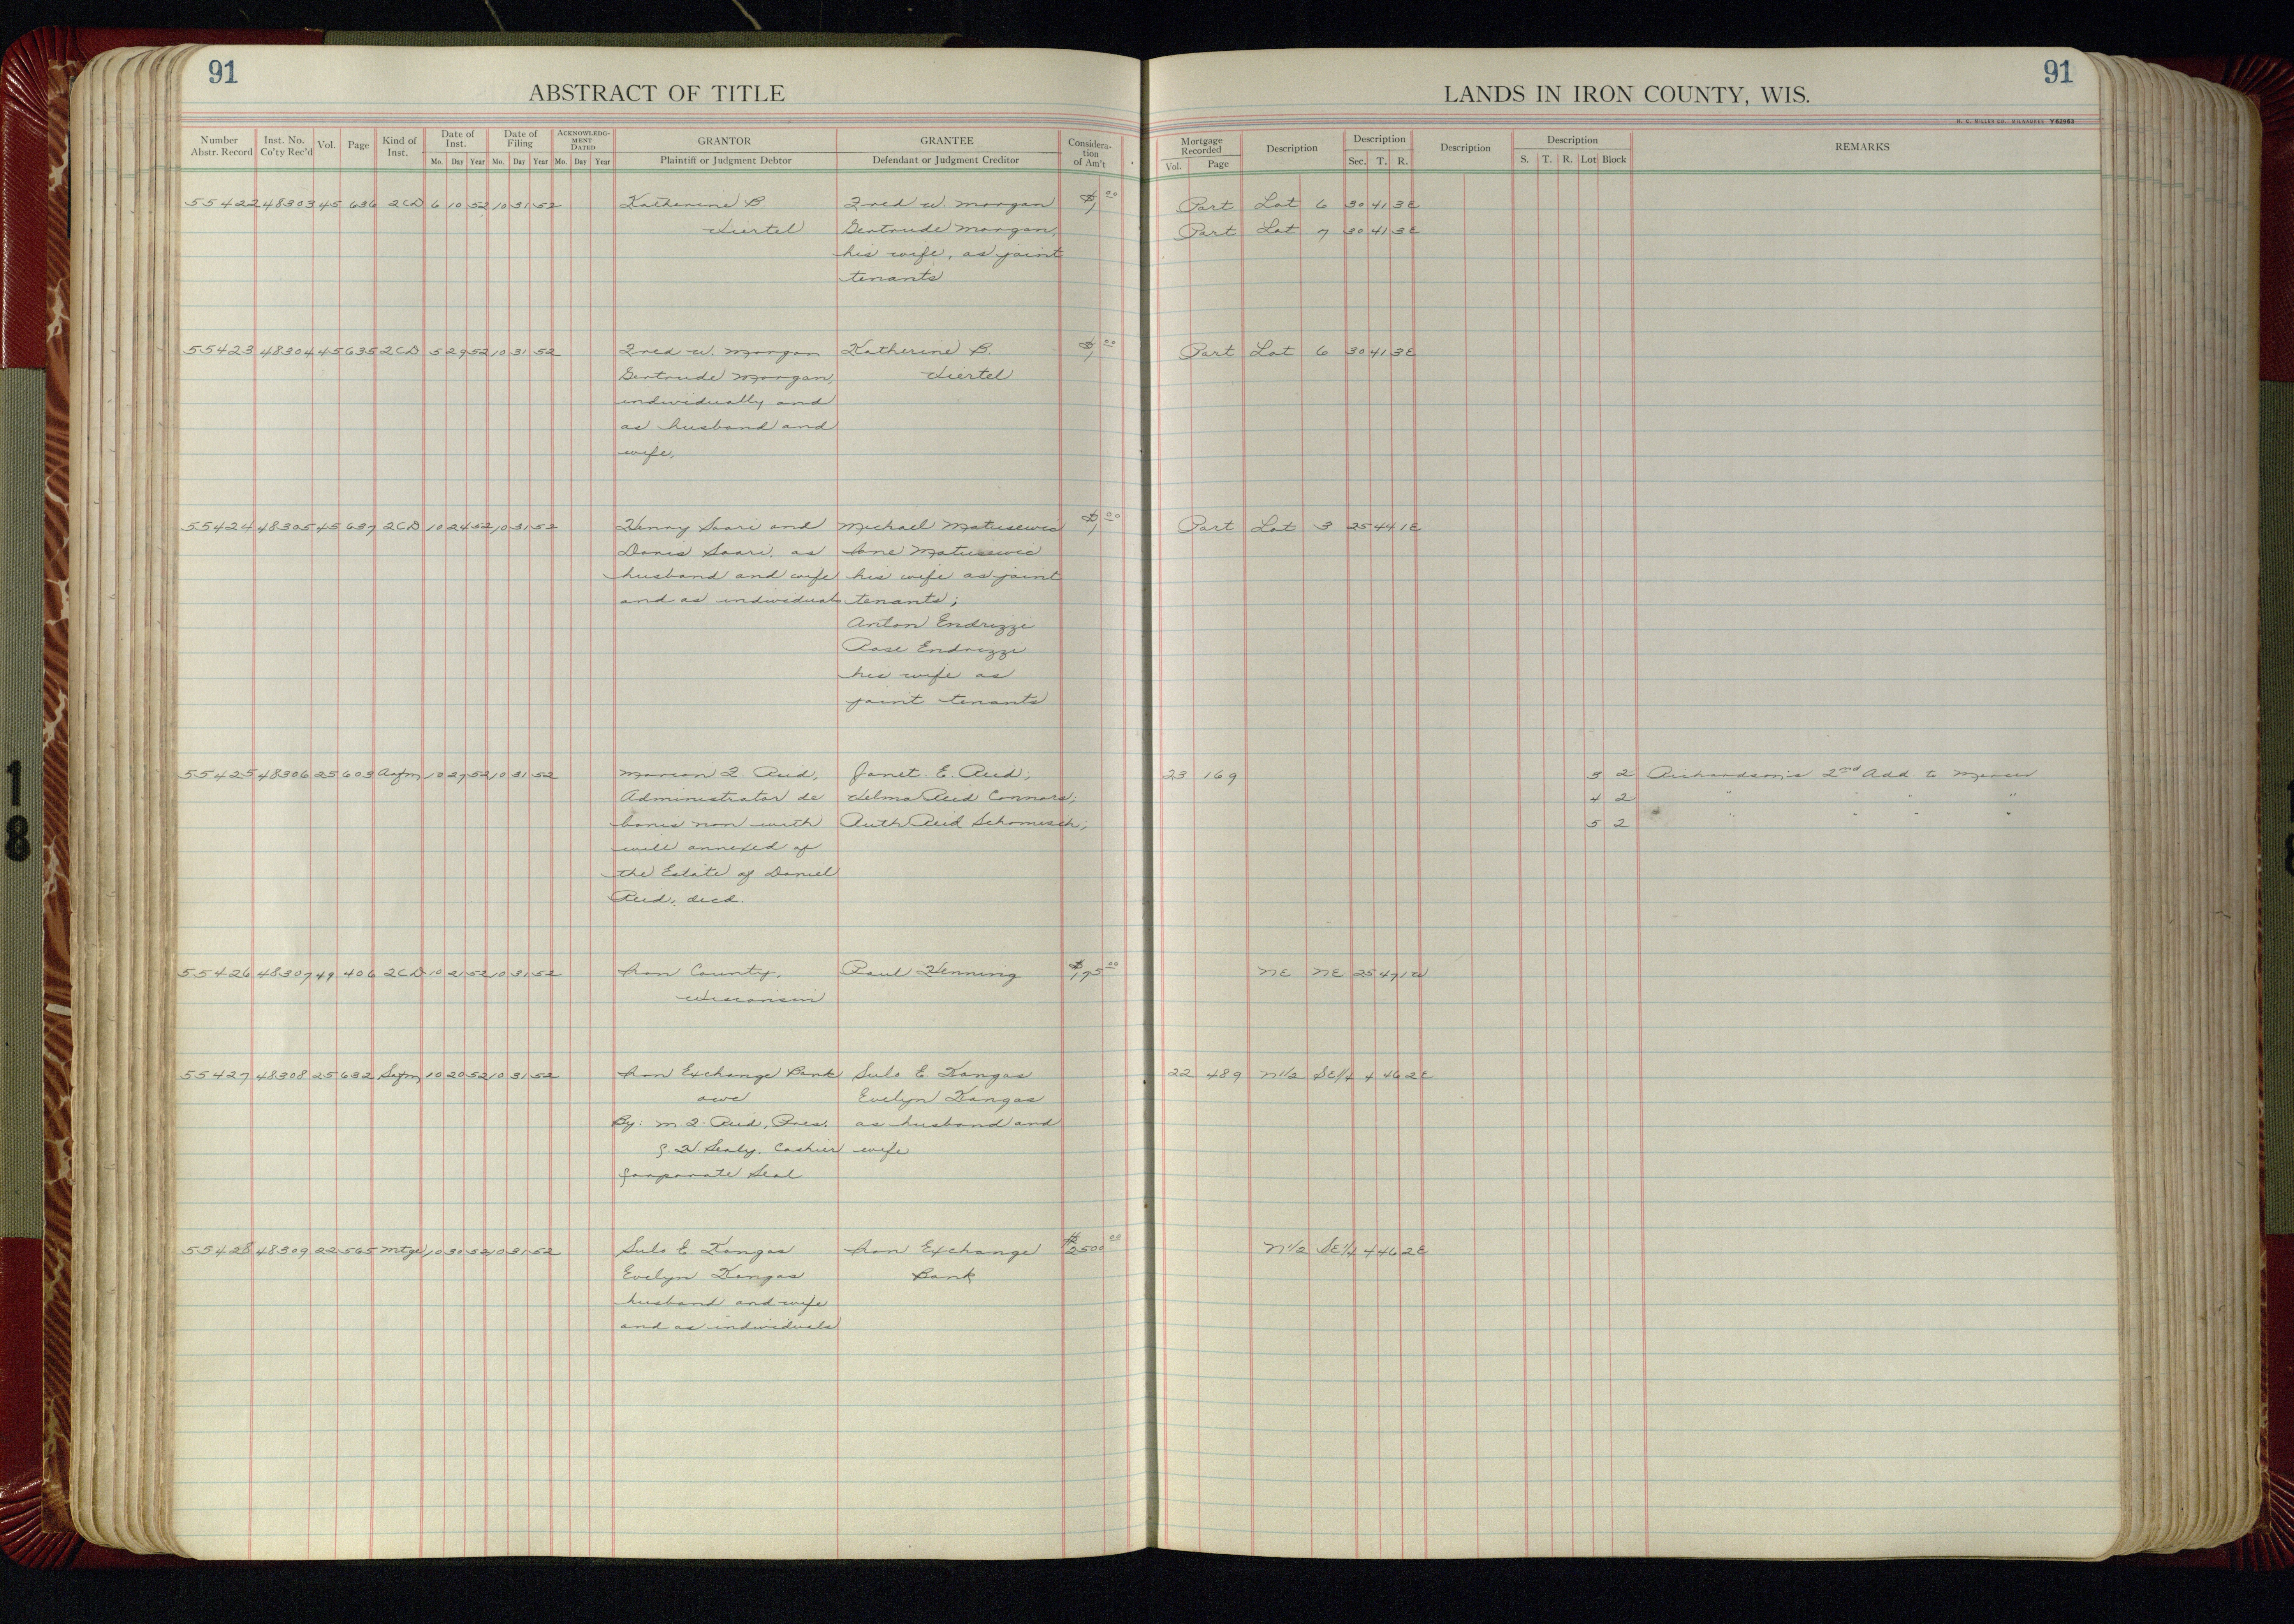 91
ABSTRACT OF TITLE
LANDS IN IRON COUNTY, WIS.
91
H. C. MILLER CO., MILWAUKEE Y62963
Number Abstr. Record Inst. No. Co'ty Rec'd Vol. Page Kind of Inst. Date of Inst. Mo. Day Year Date of Filing Mo. Day Year ACKNOWLEDGMENT DATED Mo. Day Year GRANTOR Plaintiff or Judgment Debtor GRANTEE Defendant or Judgment Creditor Consideration of Am't Mortgage Recorded Vol. Page Description Description Sec. T. R. Description Description S. T. R. Lot Block REMARKS
55422 48303 45 636 2CD 6 10 52 10 31 52 Katherine B. Fred W. Morgan $1 00 Part Lot 6 30 41 3E
Gertrude Morgan, Part Lot 7 30 41 3E
his wife, as joint
tenants
55423 48304 45 635 2CD 5 29 52 10 31 52 Fred W. Morgan Katherine B. $1 00 Part Lot 6 30 41 3E
Gertrude Morgan,
individually and
as husband and
wife,
55424 48305 45 637 2CD 10 24 52 10 31 52 Henry Saari and Michael Matusewic $1 00 Part Lot 3 25 44 1E
Doris Saari, as Jane Matusewic
husband and wife his wife as joint
and as individuals tenants;
Anton Endrizzi
Rose Endrizzi
his wife as
joint tenants
55425 48306 25 603 Asgm 10 27 52 10 31 52 Marion F. Reid, Janet E. Reid; 23 169 3 2 Richardson's 2nd Add. to Mercer
Administrator de Velma Reid Connors; 4 2 " " " "
bonis non with Ruth Reid Schomisch; 5 2 " " " "
will annexed of
the Estate of Daniel
Reid, decd.
55426 48307 49 406 2CD 10 21 52 10 31 52 Iron County, Paul Henning $175 00 NE NE 25 47 1W
Wisconsin
55427 48308 25 632 Satm 10 20 52 10 31 52 Iron Exchange Bank Sulo E. Kangas 22 489 N1/2 SE1/4 4 46 2E
Evelyn Kangas
By: M. F. Reid, Pres. as husband and
Sealy, Cashier wife
Corporate Seal
55428 48309 22 565 Mtge 10 30 52 10 31 52 Sulo E. Kangas Iron Exchange $2500 00 N1/2 SE1/4 4 46 2E
Evelyn Kangas Bank
husband and wife
and as individuals
18